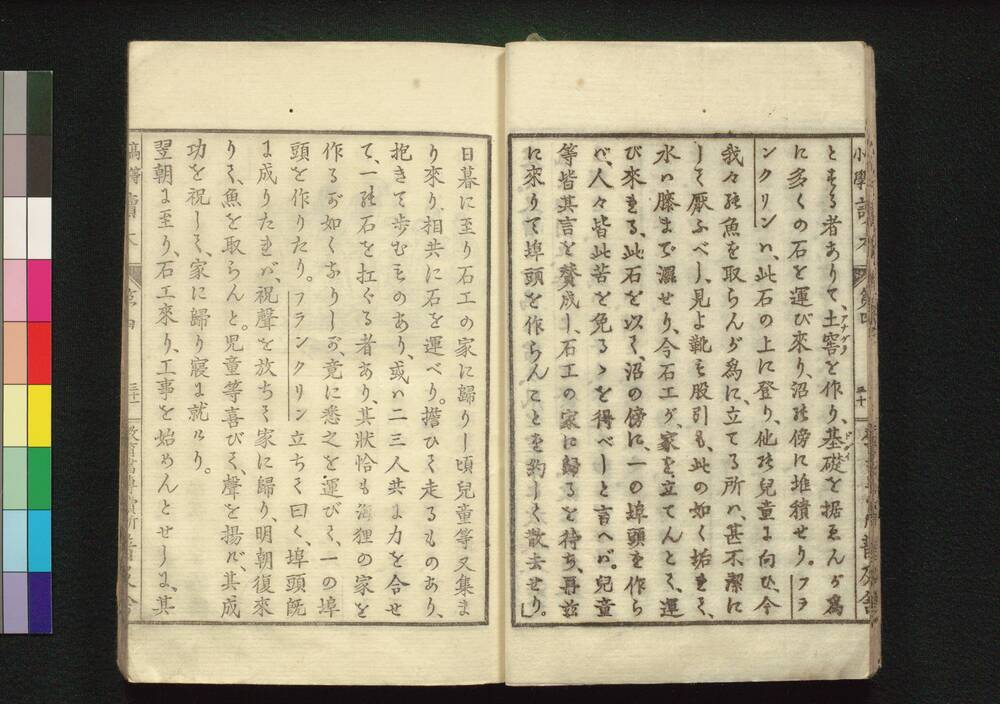 とする者ありて、土窖を作り、基礎を据ゑんが爲
アナグラ
ドダイ
に多くの石を運び來り、沼の傍に堆積せり。フラ
ンクリンハ、此石の上に登り、他の兒童に向ひ、今
我々の魚を取らんが爲に、立てる所ハ、甚不潔に
して厭ふべし、見よ靴も股引も、此の如く垢れて、
水ハ膝まで濕せり、今石工が、家を立てんとて、運
び來れる、此石を以て、沼の傍に、一の埠頭を作ら
バ、人々皆此苦を免るゝを得べしと言へバ。兒童
等皆其言を賛成し、石工の家に歸るを待ち、再玆
に來りて埠頭を作らんことを約して散去せり。」
小學讀本
第四
三十
日暮に至り石工の家に歸りし頃兒童等又集ま
り來り、相共に石を運べり。擔ひて走るものあり、
抱きて歩むものあり、或ハ二三人共に力を合せ
て、一の石を扛ぐる者あり、其狀恰も海狸の家を
作るが如くなりしが、竟に悉之を運びて、一の埠
頭を作りたり。フランクリン立ちて曰く、埠頭既
に成りたれバ、祝聲を放ちて家に歸り、明朝復來
りて、魚を取らんと。兒童等喜びて、聲を揚げ、其成
功を祝して、家に歸り寢に就けり。
翌朝に至り、石工來り、工事を始めんとせしに、其
第四
三十一